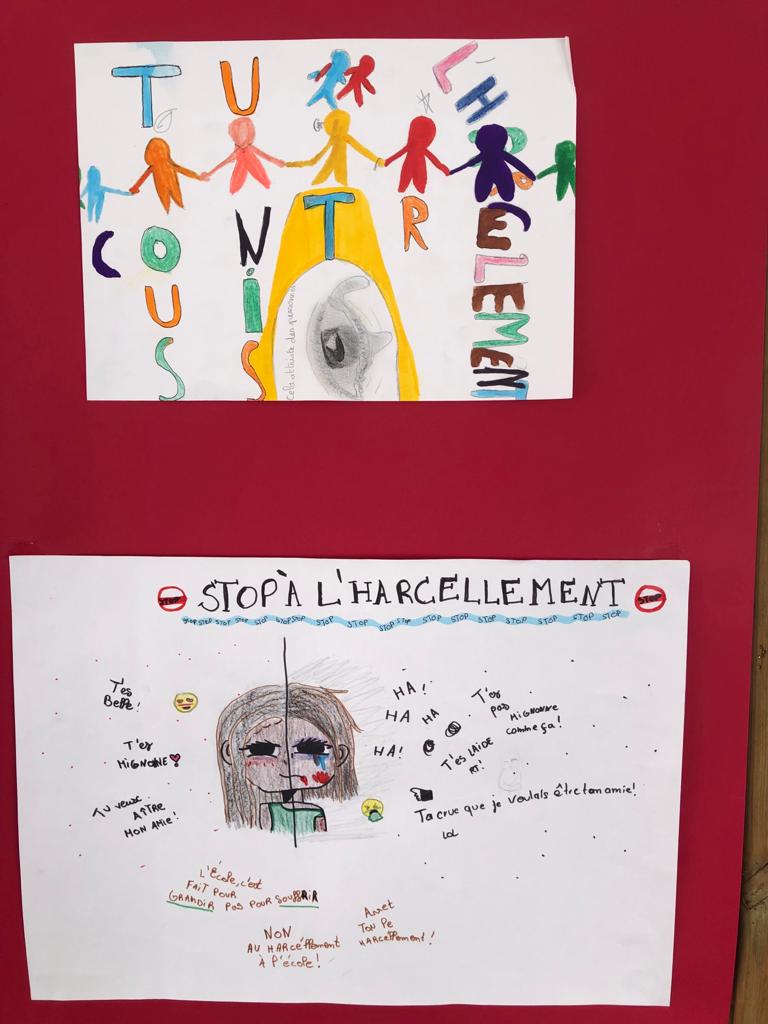 TOUS
UNIS
CONTRE
LHARCELEMENT
Cela atteinte des personnes
STOP
STOP À L'HARCELLEMENT
STOP
STOP STOP STOP STOP STOP STOP STOP STOP STOP STOP STOP STOP STOP STOP STOP STOP STOP
T'es
Belle!
T'es
MIGNONNE
Tu veux
AÎTRE
MON AMIE!
HA!
HA HA
HA!
T'es
pas
MIGNONNE
comme ça!
T'es LAIDE
Ta crue que je voulais être ton amie!
LOL
L'École, c'est
FAIT POUR
GRANDIR PAS POUR SOUFFRIR
NON
AU HARCÉLLEMENT
À l'école!
Arret
TON
HARCELLEMENT!